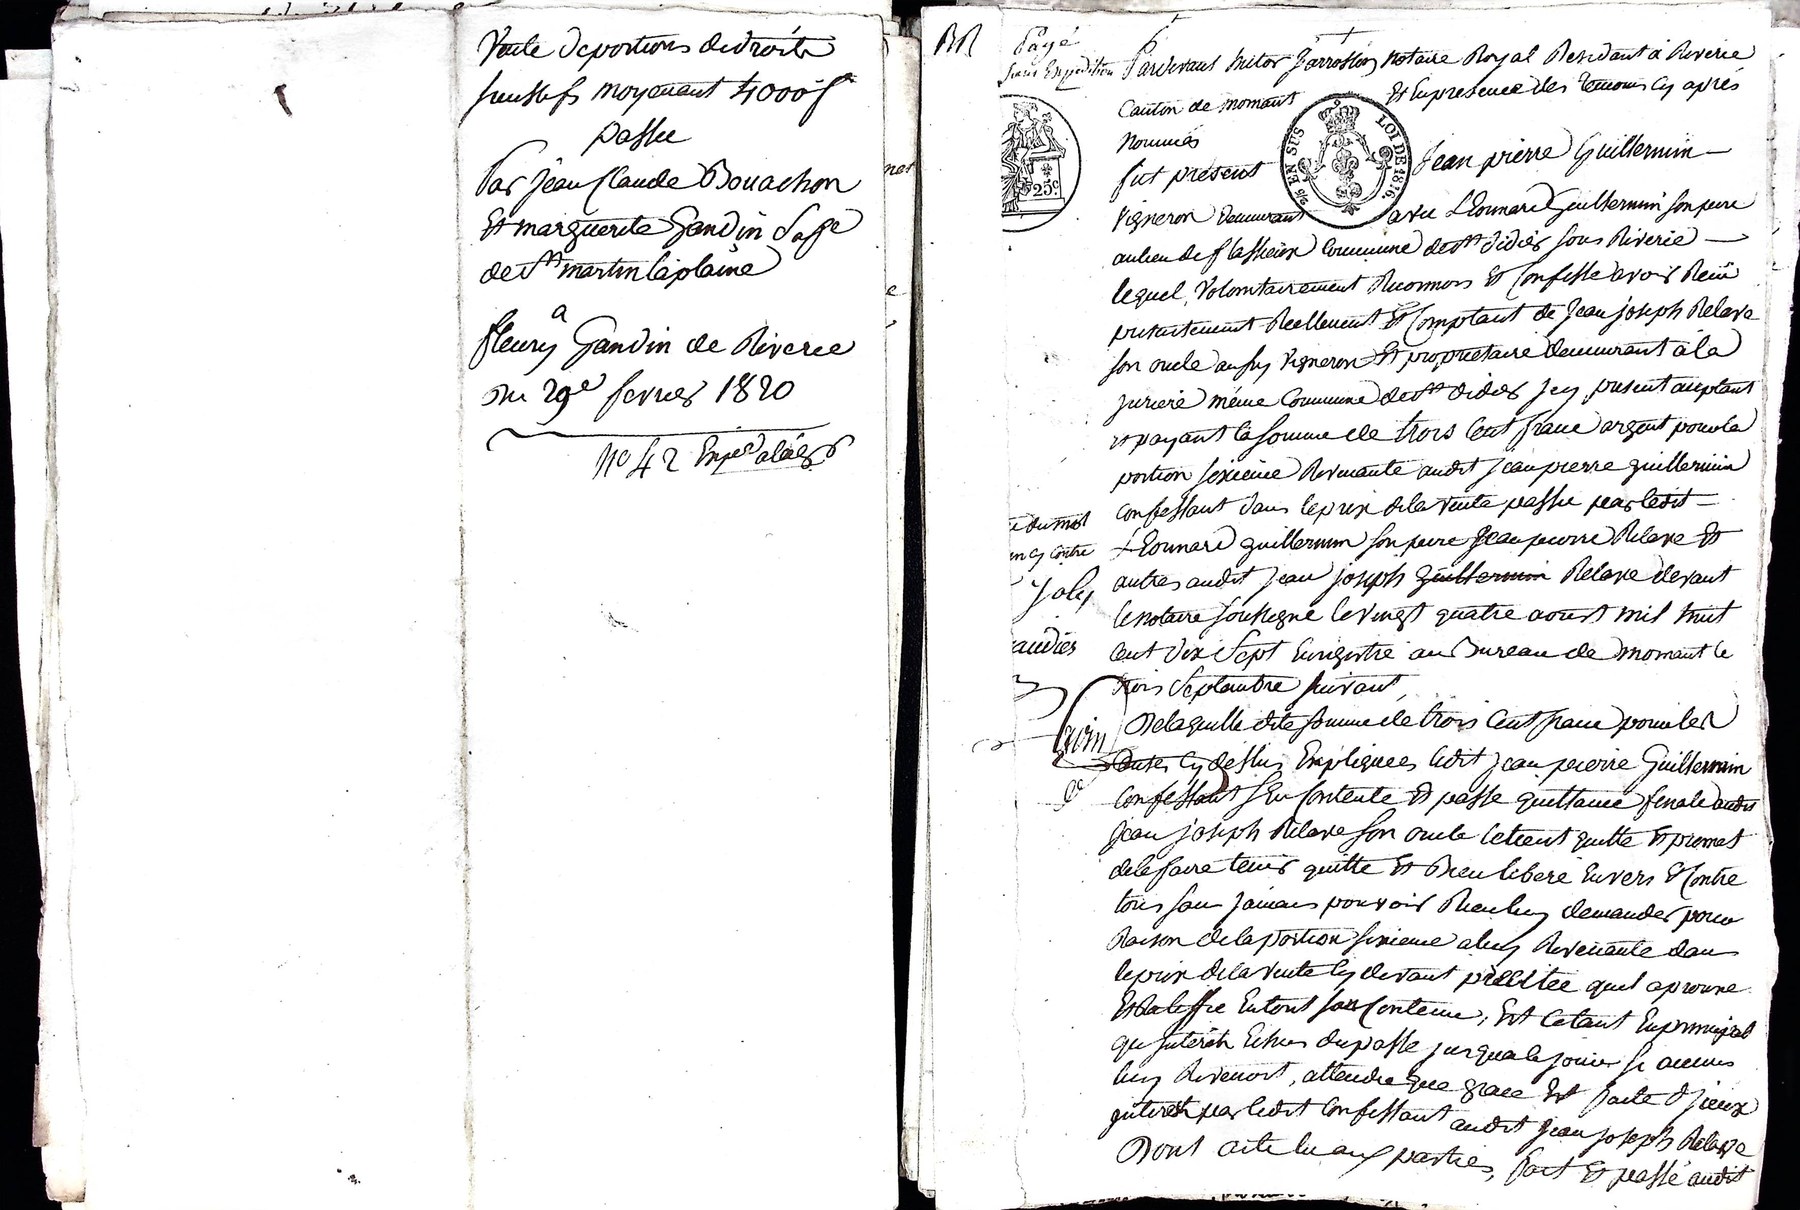 Vente de portions de droits
sucessifs moyenant 4000f
passée
Par Jean Claude Bouachon
Et marguerite Gandin Sage
de St martin laplaine
a
fleury Gandin de Riverie
Du 29e fevrier 1820
No 42 Exped
BR
Payé
sans Expedition
Pardevant victor Jarrossin notaire Royal Residant à Riverie
Canton de mornant Et en presence des temoins cy après
Nommés
fut présent Jean pierre Guillermin
vigneron demeurant avec Léonnard Guillermin son pere
au lieu de flassieux Commune de St didier sous Riverie
lequel, volontairement Reconnois Et Confesse avoir Reçu
presentement Reellement Et Comptant de Jean joseph Relave
son oncle aussy vigneron Et propriétaire demeurant à la
juriere même Commune de St didier jcy present acceptant
et payant la somme de trois Cent franc argent pour la
portion sixieme Revenante audit jean pierre guillermin
Confessant dans le prix de la vente passée par ledit
Léonnard guillermin son pere Jean pierre Relave Et
autres audit jean joseph guillermin Relave devant
le notaire soussigné le vingt quatre aoust mil huit
cent dix Sept Enregistré au Bureau de mornant le
trois Septembre suivant,
De laquelle dite somme de trois Cent franc pour les
Causes Cy dessus Expliquées ledit jean pierre Guillermin
Confessant s'En Contente Et passe quittance finale audit
Jean joseph Relave son oncle le tient quitte Et promet
de le faire tenir quitte Et Bien liberé Envers Et Contre
tous sans jamais pouvoir Rien luy demander pour
Raison de la portion sixieme a luy Revenante dans
le prix de la vente Cy devant précitée quil aprouve
Et Ratiffie En tout son Contenu, Et Cetant En principal
qu'jnterêts Echus du passé jusqua ce jour si aucuns
luy Revenoit, attendu que grace Est faite d'jceux
jnterêts par ledit Confessant audit Jean joseph Relave
Dont acte lu aux parties, fait Et passé audit
LOI DE 1816.
EN SUS
25c.